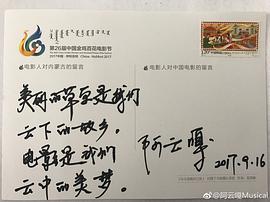 第26届中国金鸡百花电影节
2017中国·呼和浩特 China · Hohhot 2017
电影人对内蒙古的留言
电影人对中国电影的留言
美丽的草原是我们
云下的故乡。
电影是我们
云中的美梦。
阿云嘎
2017.9.16
@阿云嘎Musical
weibo.com